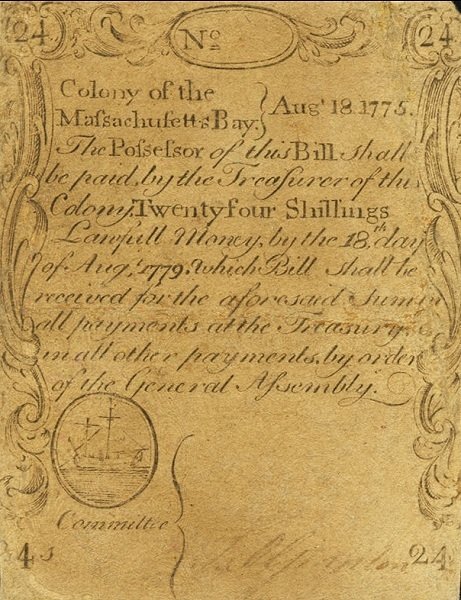 24 No 24
Colony of the
Maſsachuſetts Bay. } Augt 18. 1775.
The Poſseſsor of this Bill shall
be paid, by the Treaſurer of this
Colony, Twenty four Shillings
Lawfull Money, by the 18.th day
of Augt. 1779. which Bill shall be
received for the aforesaid Sum in
all payments at the Treasury,
in all other payments, by order
of the General Aſsembly.
Committee
24s 24